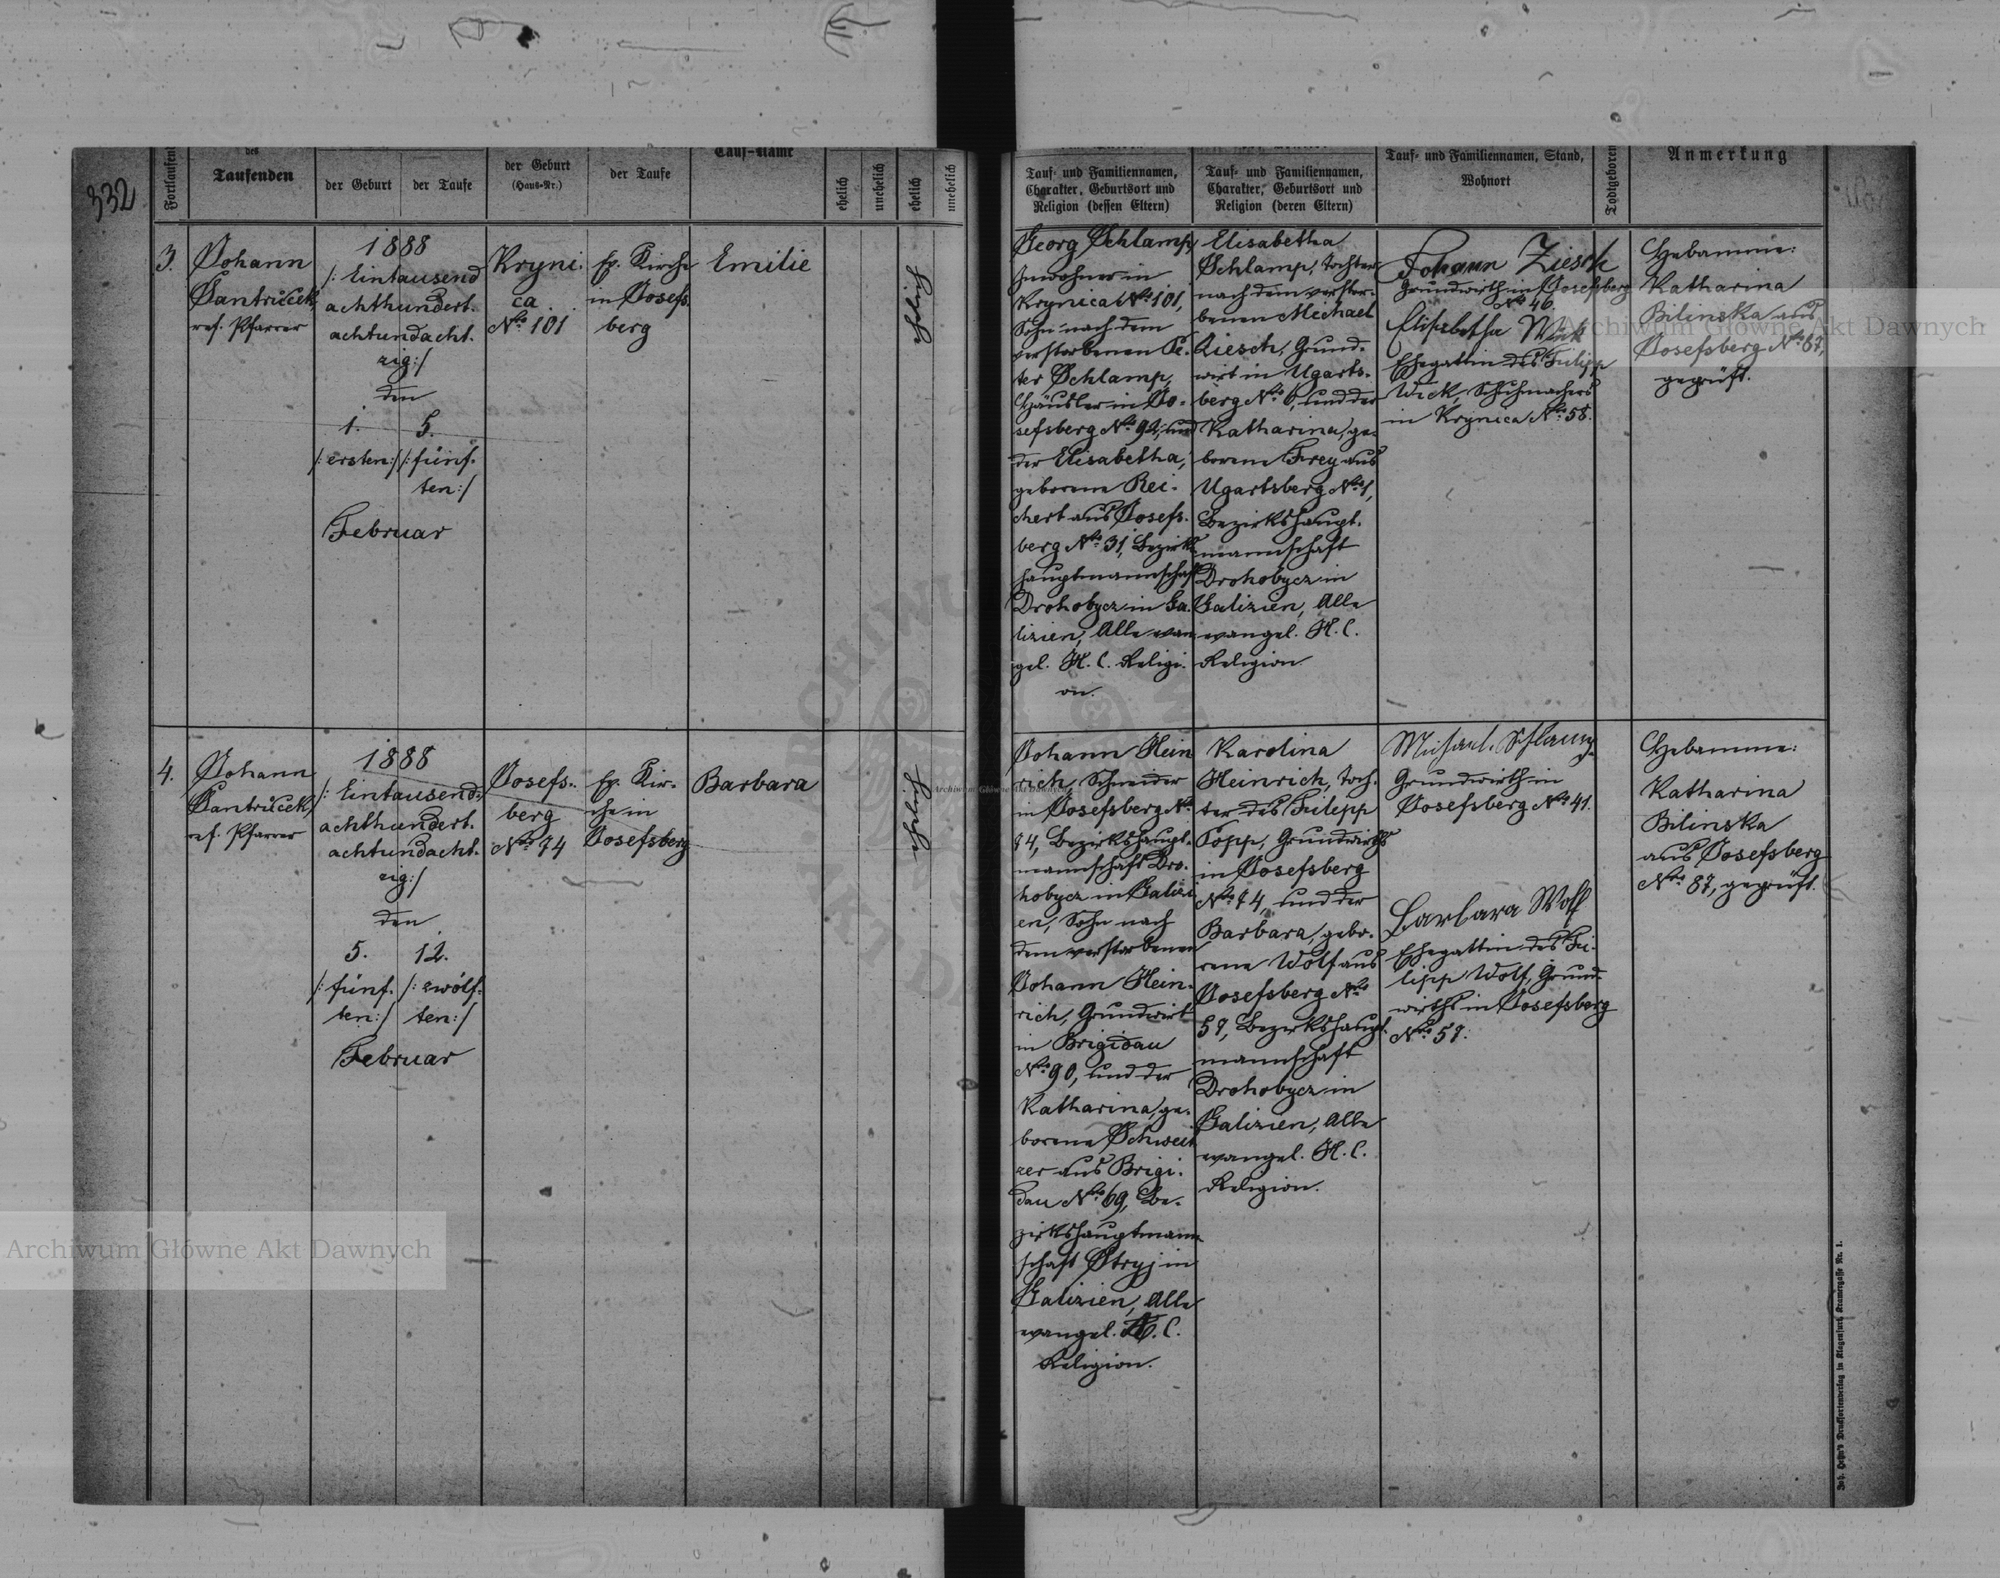 332
Fortlaufend
des
Taufenden
der Geburt
der Taufe
der Geburt
(Haus-Nr.)
der Taufe
Tauf-Name
ehelich
unehelich
ehelich
unehelich
3.
Johann
Jantričck,
ref. Pfarrer
1888
/: Eintausend
achthundert.
achtundacht.
zig :/
den
1. 5.
/: ersten :/ /: fünf.
ten :/
Februar
Kryni.
ca
Nro 101
Ev. Kirche
in Josefs
berg
Emilie
4.
Johann
Jantričck,
ref. Pfarrer
1888
/: Eintausend
achthundert.
achtundacht.
zig :/
den
5. 12.
/: fünf. /: zwölf.
ten :/ ten :/
Februar
Josefs.
berg
Nro 74
Ev. Kir.
che in
Josefsberg
Barbara
Tauf- und Familiennamen,
Charakter, Geburtsort und
Religion (dessen Eltern)
Tauf- und Familiennamen,
Charakter, Geburtsort und
Religion (deren Eltern)
Tauf- und Familiennamen, Stand,
Wohnort
Todtgeboren
Anmerkung
Georg Schlamp,
Inwohner in
Krynica Nro 101,
Sohn nach dem
verstorbenen Pe.
ter Schlamp,
Häusler in Jo.
sefsberg Nro 92, und
der Elisabetha,
geborene Rei.
chert aus Josefs.
berg Nro 31, Bezirks
hauptmannschaft
Drohobycz in Ga.
lizien, Alle evan
gel. H. C. Religi.
on.
Elisabetha
Schlamp, Tochter
nach dem verstor.
benen Michael
Ziesch, Grund.
wirt in Ugarts.
berg Nro 6, und der
Katharina, ge.
borene Frey aus
Ugartsberg Nro 1,
Bezirkshaupt.
mannschaft
Drohobycz in
Galizien, Alle
evangel. H. C.
Religion.
Johann Ziesch
Grundwirth in Josefsberg
No 46.
Elisabetha Wick
Ehegattin des Filipp
Wick, Schuhmachers
in Krynica Nro 58.
Hebamme:
Katharina
Bilinska aus
Josefsberg Nro 87,
geprüft.
Johann Hein
rich, Schneider
in Josefsberg Nro
74, Bezirkshaupt.
mannschaft Dro.
hobycz in Galizi
en, Sohn nach
dem verstorbenen
Johann Hein.
rich, Grundwirt
in Brigidau
Nro 90, und der
Katharina, ge.
borene Schweit
zer aus Brigi.
dau Nro 69, Be.
zirkshauptmann
schaft Stryj in
Galizien, Alle
evangel. H. C.
Religion.
Karolina
Heinrich, Toch.
ter des Filipp
Popp, Grundwirths
in Josefsberg
Nro 74, und der
Barbara, gebo.
rene Wolf aus
Josefsberg Nro
57, Bezirkshaupt.
mannschaft
Drohobycz in
Galizien, Alle
evangel. H. C.
Religion.
Michael Schlamp
Grundwirth in
Josefsberg Nro 41.
Barbara Wolf
Ehegattin des Fi.
lipp Wolf, Grund.
wirths in Josefsberg
Nro 57.
Hebamme:
Katharina
Bilinska
aus Josefsberg
Nro 87, geprüft.
Archiwum Główne Akt Dawnych
Archiwum Główne Akt Dawnych
Archiwum Główne Akt Dawnych